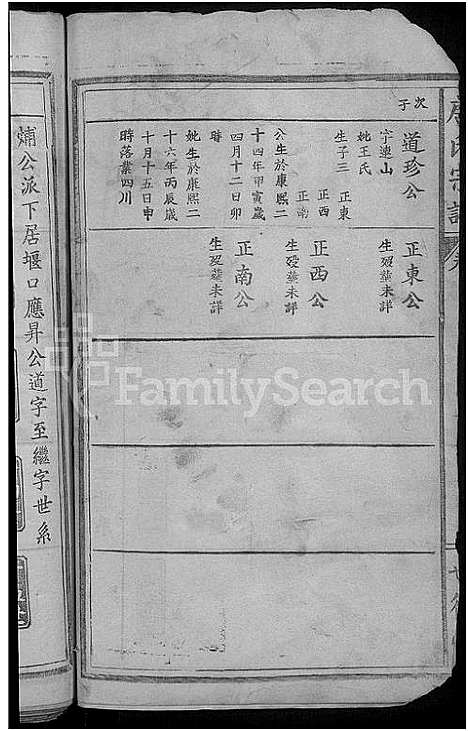 次子
道珍公
字連山
妣王氏
生子三 正東
正西
正南
公生於康熙二
十四年甲寅歲
四月十二日卯
時
妣生於康熙二
十六年丙辰歲
十月十五日申
時落業四川
正東公
生殁葬未詳
正西公
生殁葬未詳
正南公
生殁葬未詳
公派下居堰口應昇公道字至繼字世系
FamilySearch